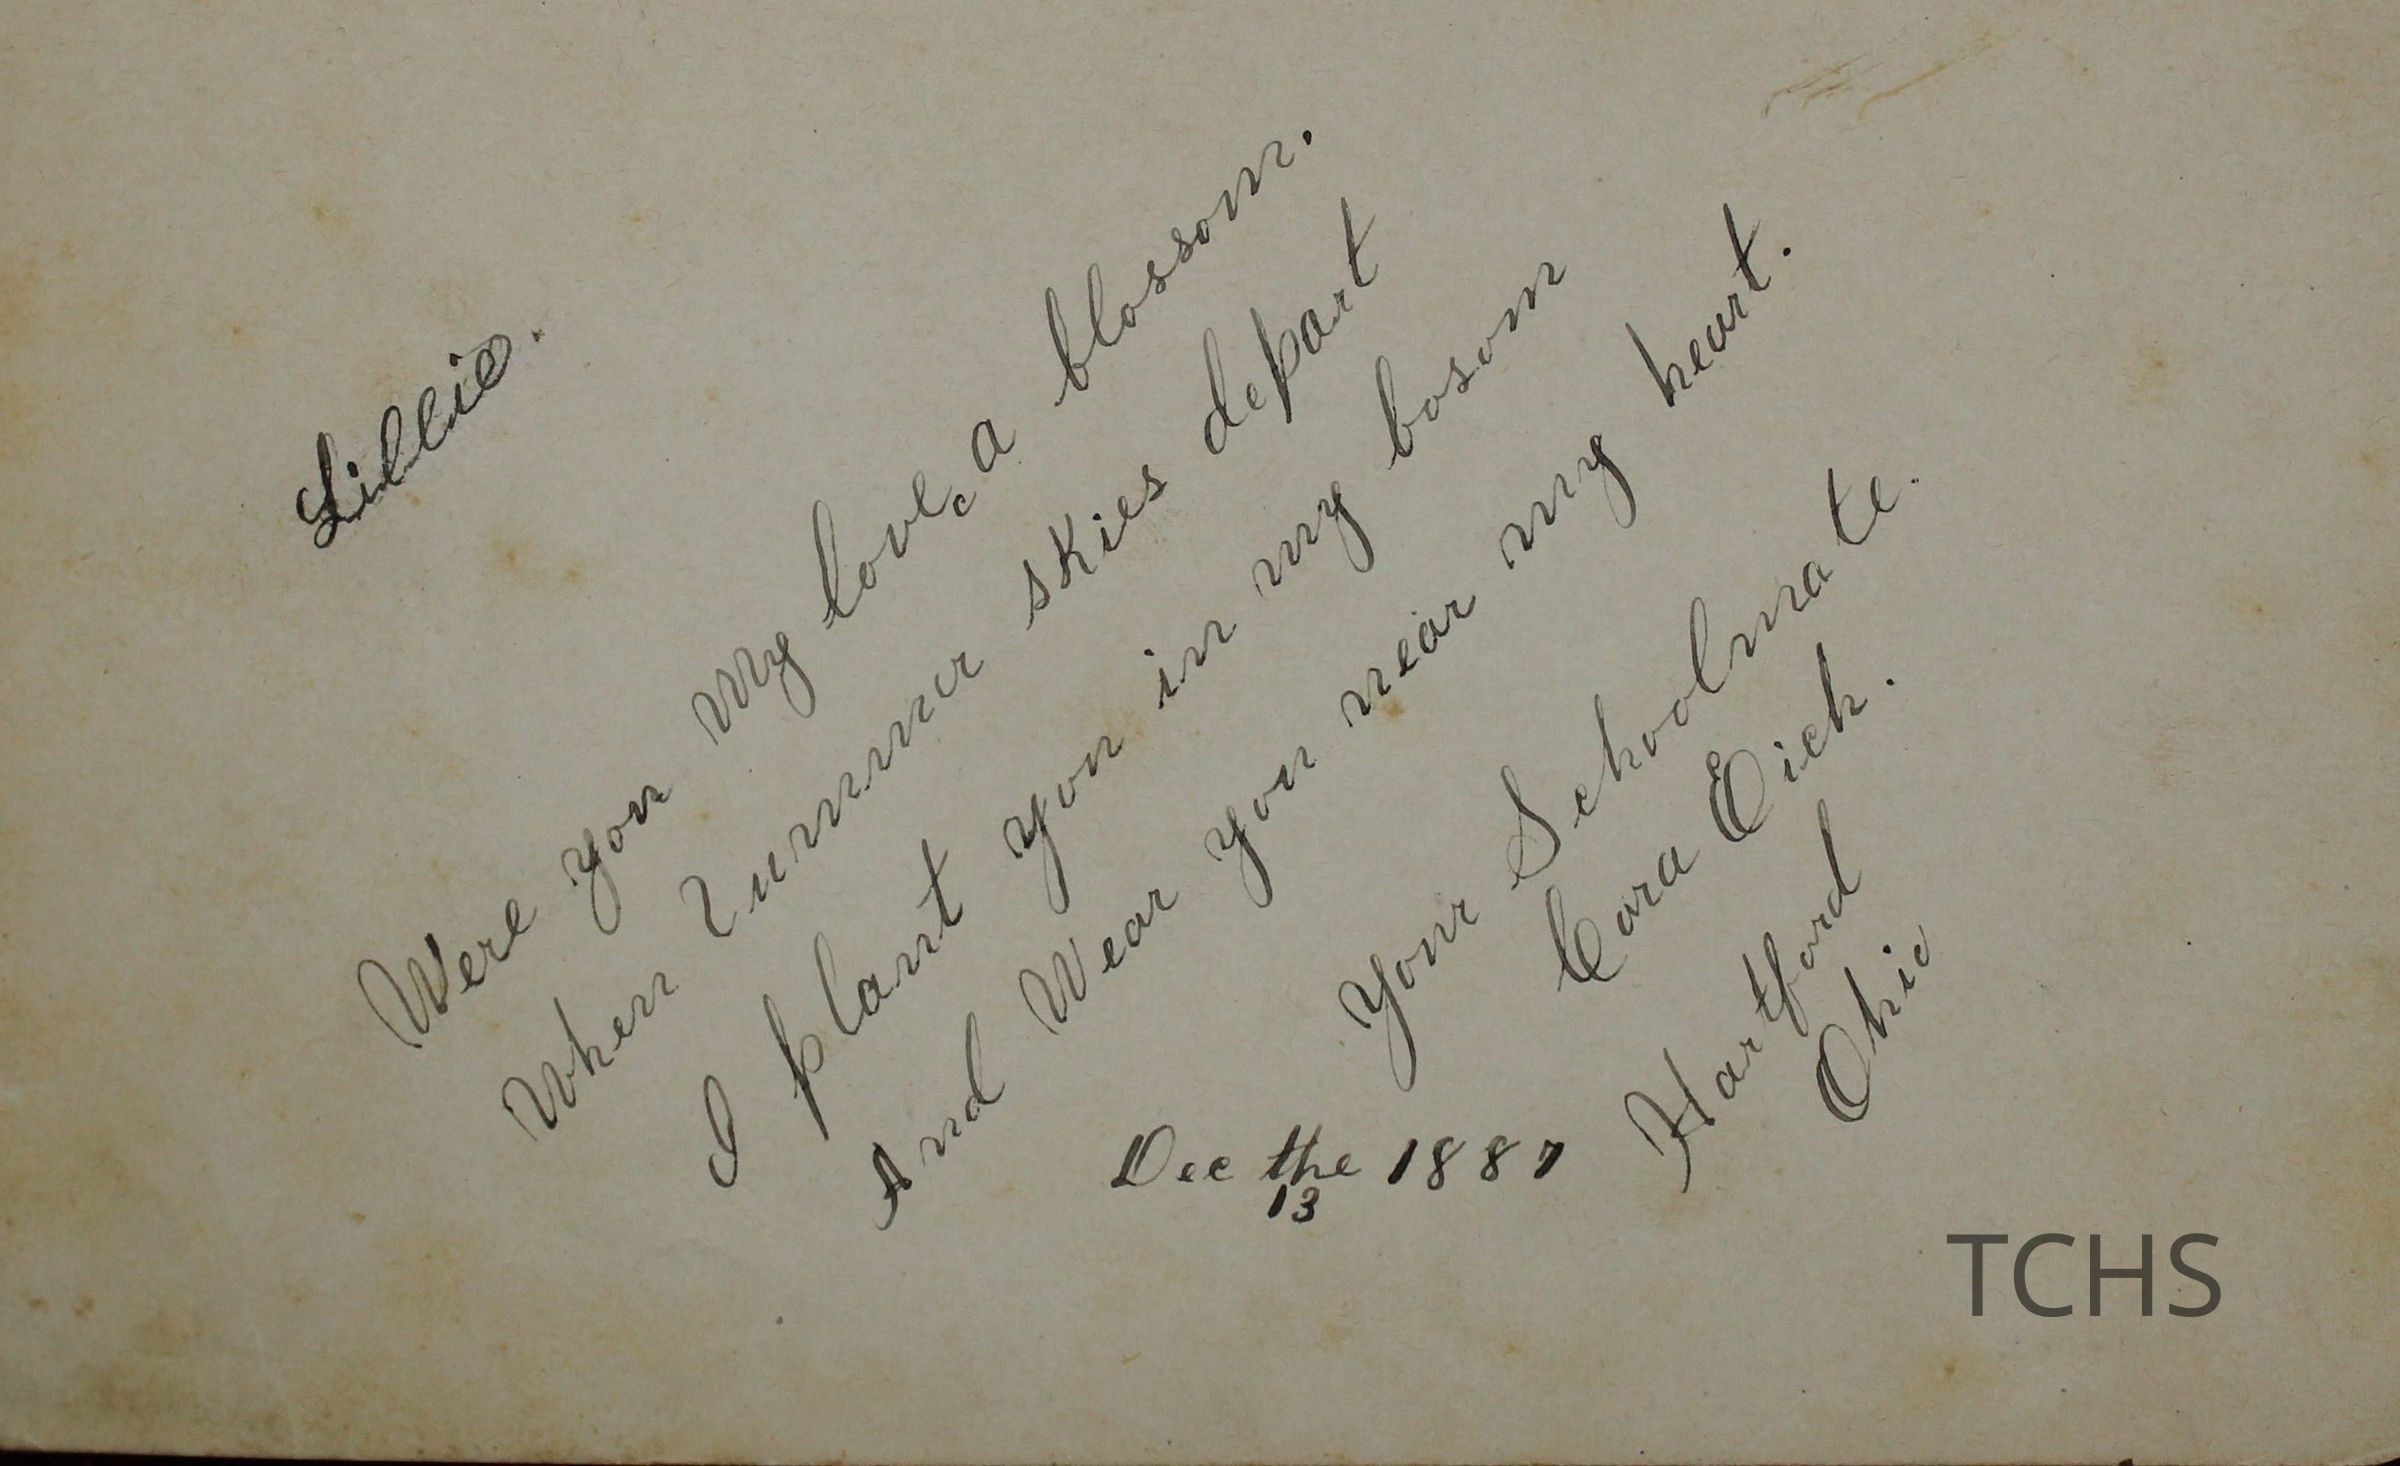 Lillie.
Were you my love, a blossom.
When summer skies depart
I plant you in my bosom
And Wear you near my heart.
Your Schoolmate.
Cora Eich.
Hartford
Ohio
Dec the 1887
13
TCHS